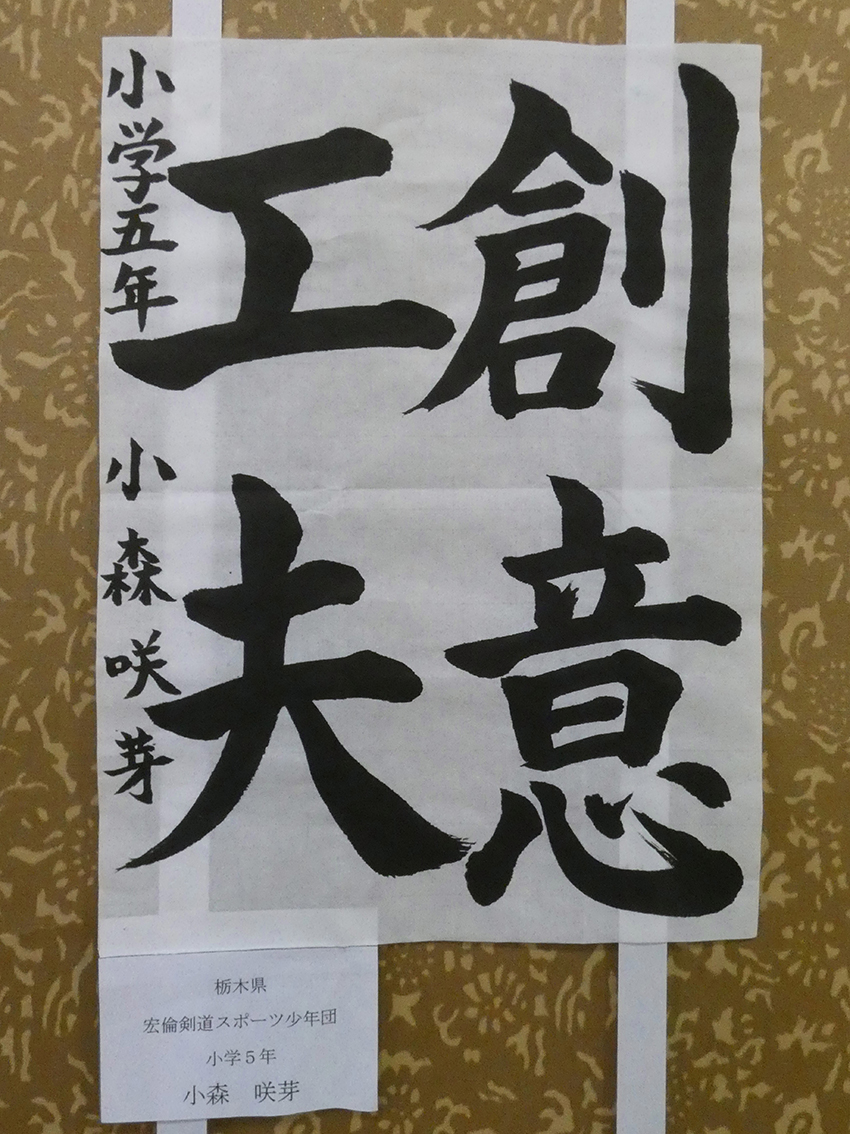 創意
工夫
小学五年 小森咲芽
栃木県
宏倫剣道スポーツ少年団
小学5年
小森 咲芽